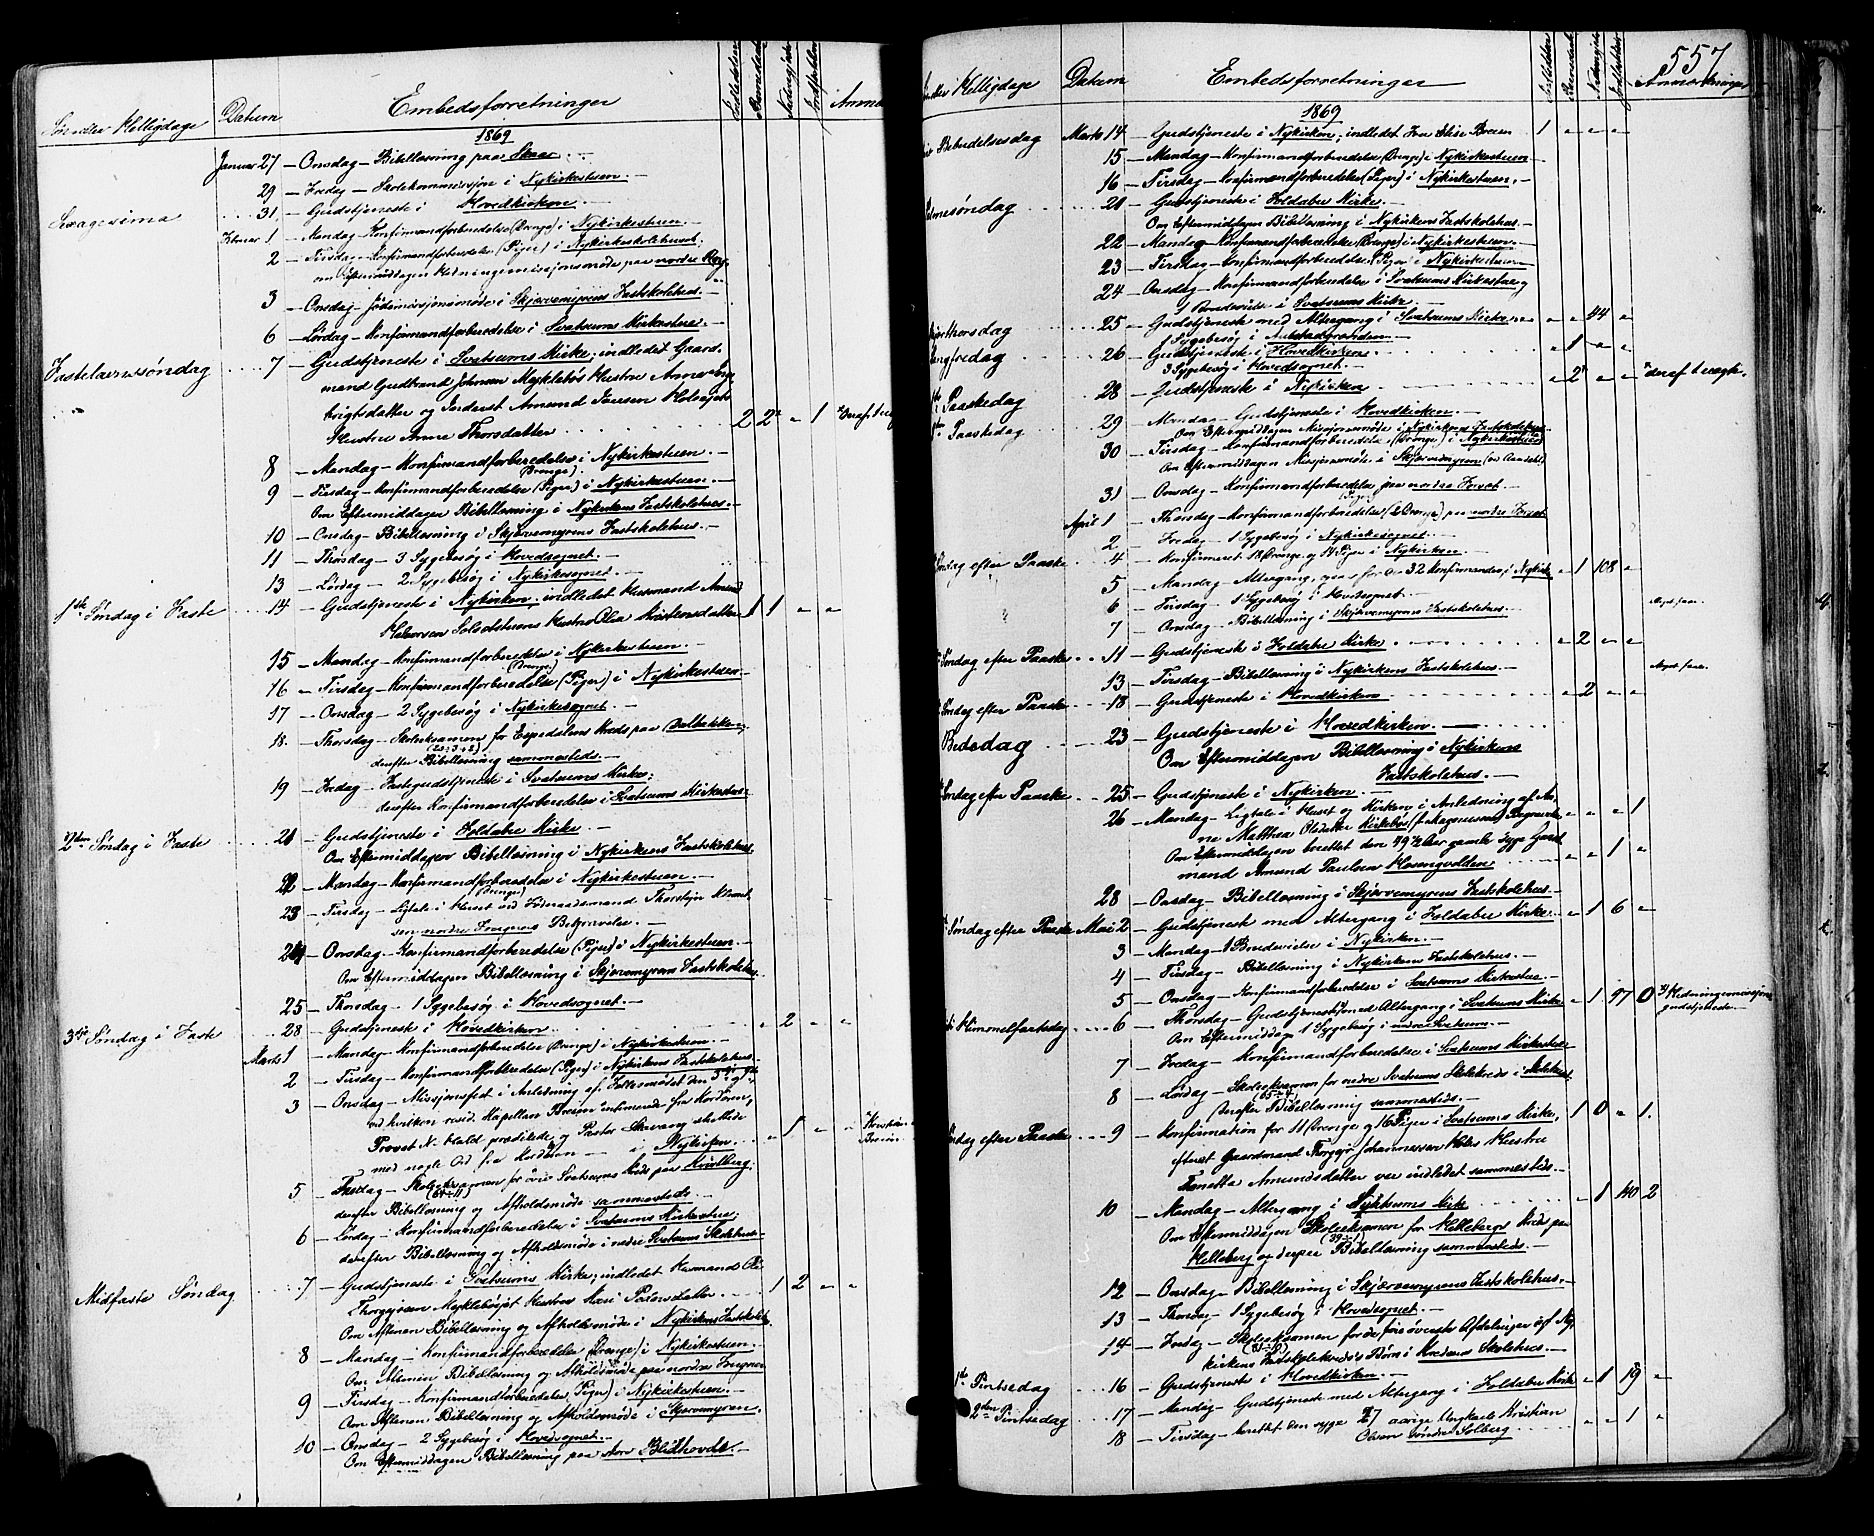 Sønder Helligdage Datum Embedsforretninger
1869
Januar 27 – Onsdag – Bibellæsning paa Skaar.
29 – Fredag – Skolekommissjon i Nykirkestuen.
Sexagesima 31 – Gudstjeneste i Hovedkirken.
Februar 1 – Mandag – Konfirmandforberedelse (Drenge) i Nykirkestuen.
2 – Tirsdag – Konfirmandforberedelse (Piger) i Nykirkeskolehuset;
om Eftermiddagen Hedningemissjonsmøde paa nordre
3 – Onsdag – Jødemissjonsmøde i Skjærvemyrens Fastskolehus.
6 – Lørdag – Konfirmandforberedelse i Svatsums Kirkestue.
Fastelavnssøndag 7 – Gudstjeneste i Svatsums Kirke; indledet Gaard-
mand Gudbrand Johnsen Mykleböes Hustru Anne
brigtsdatter og Inderst Amund Hustru
Hustru Anne Thorsdatter 2 2 " 1
8 – Mandag – Konfirmandforberedelse i Nykirkestuen.
(Drenge)
9 – Tirsdag – Konfirmandforberedelse (Piger) i Nykirkestuen.
Om Eftermiddagen Bibellæsning i Nykirkens Fastskolehus.
10 – Onsdag – Bibellæsning i Skjærvemyrens Fastskolehus.
11 – Thorsdag – 3 Sygebesøg i Hovedsognet.
13 – Lørdag – 2 Sygebesøg i Nykirkesognet.
1ste Søndag i Faste 14 – Gudstjeneste i Nykirken; indledet Husmand
Hustru Olia Kristensdatter 1 1 " "
15 – Mandag – Konfirmandforberedelse i Nykirkestuen.
(Drenge)
16 – Tirsdag – Konfirmandforberedelse (Piger) i Nykirkestuen.
17 – Onsdag – 2 Sygebesøg i Nykirkesognet.
18. – Thorsdag – Skoleeksamen for Espedalens Kreds paa Dalbakken;
derefter Bibellæsning sammesteds.
19 – Fredag – Fastegudstjeneste i Svatsums Kirke;
derefter Konfirmandforberedelse i Svatsums Kirkestue.
2den Søndag i Faste 21 – Gudstjeneste i Foldabu Kirke.
Om Eftermiddagen Bibellæsning i Nykirkens Fastskolehus.
22 – Mandag – Konfirmandforberedelse i Nykirkestuen.
(Drenge)
23 – Tirsdag – Ligtale i Huset ved Thorstein
sen nordre Begravelse.
24 – Onsdag – Konfirmandforberedelse (Piger) i Nykirkestuen.
Om Eftermiddagen Bibellæsning i Skjærvemyrens Fastskolehus.
25 – Thorsdag – 1 Sygebesøg i Hovedsognet.
3die Søndag i Faste 28 – Gudstjeneste i Hovedkirken " 2 " "
Marts 1 – Mandag – Konfirmandforberedelse (Drenge) i Nykirkestuen.
2 – Tirsdag – Konfirmandforberedelse (Piger) i Nykirkens Fastskolehus.
3 – Onsdag – Missjonsfest i Anledning af Fællesmødet den 3die og
ved hvilken resid. Kapellan Breien
Provst N. Hald prædikede og Pastor
med nogle Ord fra Kordøren – i Nykirken. " 1 " "
5 – Fredag – Skoleeksamen for øvre Svatsums Kreds paa Kvilberg;
derefter Bibellæsning og Afholdsmøde sammesteds.
6 – Lørdag – Konfirmandforberedelse i Svatsums Kirkestue;
derefter Bibellæsning og Afholdsmøde i nedre Svatsums Skolehus.
Midfaste Søndag 7 – Gudstjeneste i Svatsums Kirke; indledet Husmand
Hustru Mari Pedersdatter 1 2 " "
Om Aftenen Bibellæsning og Afholdsmøde i Nykirkens Fastskolehus.
8 – Mandag – Konfirmandforberedelse (Drenge) i Nykirkestuen.
Om Aftenen Bibellæsning og Afholdsmøde paa nordre
9 – Tirsdag – Konfirmandforberedelse (Piger) i Nykirkestuen.
Om Aftenen Bibellæsning og Afholdsmøde i Skjærvemyren.
10 – Onsdag – 2 Sygebesøg i Hovedsognet.
Om Eftermiddagen Bibellæsning paa store
557
Helligdage Datum Embedsforretninger Anmærkninger
1869
Bebudelsesdag Marts 14 – Gudstjeneste i Nykirken; indledet Fru Elise Breien 1 " " "
15 – Mandag – Konfirmandforberedelse (Drenge) i Nykirkestuen.
16 – Tirsdag – Konfirmandforberedelse (Piger) i Nykirkestuen.
Palmesøndag 21 – Gudstjeneste i Foldabu Kirke.
Om Eftermiddagen Bibellæsning i Nykirkens Fastskolehus.
22 – Mandag – Konfirmandforberedelse (Drenge) i Nykirkestuen.
23 – Tirsdag – Konfirmandforberedelse (Piger) i Nykirkestuen.
24 – Onsdag – Konfirmandforberedelse i Svatsums Kirkestue og
1 Brudevielse i Svatsums Kirke.
Skjærthorsdag 25 – Gudstjeneste med Altergang i Svatsums Kirke. " " 44 "
1 Sygebesøg i
Langfredag 26 – Gudstjeneste i Hovedkirken. " 1 " "
3 Sygebesøg i Hovedsognet.
1ste Paaskedag 28 – Gudstjeneste i Nykirken " 2 " " deraf 1 uægte.
2den Paaskedag 29 – Mandag – Gudstjeneste i Hovedkirken.
Om Eftermiddagen Missjonsmøde i Nykirkens Fastskolehus.
30 – Tirsdag – Konfirmandforberedelse (Drenge) i Nykirkestuen
Om Eftermiddagen Missjonsmøde i Skjærvemyren
31 – Onsdag – Konfirmandforberedelse paa nordre
(Piger)
April 1 – Thorsdag – Konfirmandforberedelse (Drenge) paa nordre
2 – Fredag – 1 Sygebesøg i Nykirkesognet.
Søndag efter Paaske 4 – Konfirmeret 18 Drenge og 14 Piger i Nykirken.
5 – Mandag – Altergang, for de 32 Konfirmander, i Nykirken " 1 108 "
6 – Tirsdag – 1 Sygebesøg i Hovedsognet.
7 – Onsdag – Bibellæsning i Skjærvemyrens Fastskolehus.
Søndag efter Paaske 11 – Gudstjeneste i Foldabu Kirke " 2 " "
13 – Tirsdag – Bibellæsning i Nykirkens Fastskolehus.
Søndag efter Paaske 18 – Gudstjeneste i Hovedkirken " 2 " "
Bededag 23 – Gudstjeneste i Hovedkirken.
Om Eftermiddagen Bibellæsning i Nykirkens
Fastskolehus.
Søndag efter Paaske 25 – Gudstjeneste i Nykirken.
26 – Mandag – Ligtale i Huset og Kirken i Anledning af An-
ne Matthea Olsdatter Kirkebø Begravelse " " " 1
Om Eftermiddagen berettet den 49½ Aar gamle syge Gaard-
mand Amund Paulsen " " 1 "
28 – Onsdag – Bibellæsning i Skjærvemyrens Fastskolehus.
Søndag efter Paaske Mai 2 – Gudstjeneste med Altergang i Foldabu Kirke. " 1 6 "
3 – Mandag – 1 Brudevielse i Nykirken.
4 – Tirsdag – Bibellæsning i Nykirkens Fastskolehus.
5 – Onsdag – Konfirmandforberedelse i Svatsums Kirkestue.
Kristi Himmelfartsdag 6 – Thorsdag – Gudstjeneste med Altergang i Svatsums Kirke " 1 97 0 Hedningemissjons-
gudstjeneste.
Om Eftermiddagen 1 Sygebesøg i nedre Svatsum.
7 – Fredag – Konfirmandforberedelse i Svatsums Kirkestue
8 – Lørdag – Skoleeksamen for nedre Svatsums Skolekreds i Skolehuset
derefter Bibellæsning sammesteds.
Søndag efter Paaske 9 – Konfirmation for 11 Drenge og 16 Piger i Svatsums Kirke, 1 0 " 1.
efterat Gaardmand Johannessen Hustru
Amundsdatter var indledet sammesteds.
10 – Mandag – Altergang i Svatsums Kirke " 1 40 2
Om Eftermiddagen Skoleeksamen for Hellebergs Kreds paa
Helleberg og derpaa Bibellæsning sammesteds.
12 – Onsdag – Bibellæsning i Skjærvemyrens Fastskolehus.
13 – Thorsdag – 1 Sygebesøg i Hovedsognet.
14 – Fredag – Skoleeksamen for de øverste Afdelinger af Ny-
kirkens Fastskolekreds's Børn i Kredsens Skolehus.
1ste Pintsedag 16 – Gudstjeneste i Hovedkirken.
2den Pintsedag 17 – Mandag – Gudstjeneste med Altergang i Foldabu Kirke " 1 19 "
18 – Tirsdag – berettet den syge 27 aarige Ungkarl Kristian
Olsen søndre Solberg " " 1 "